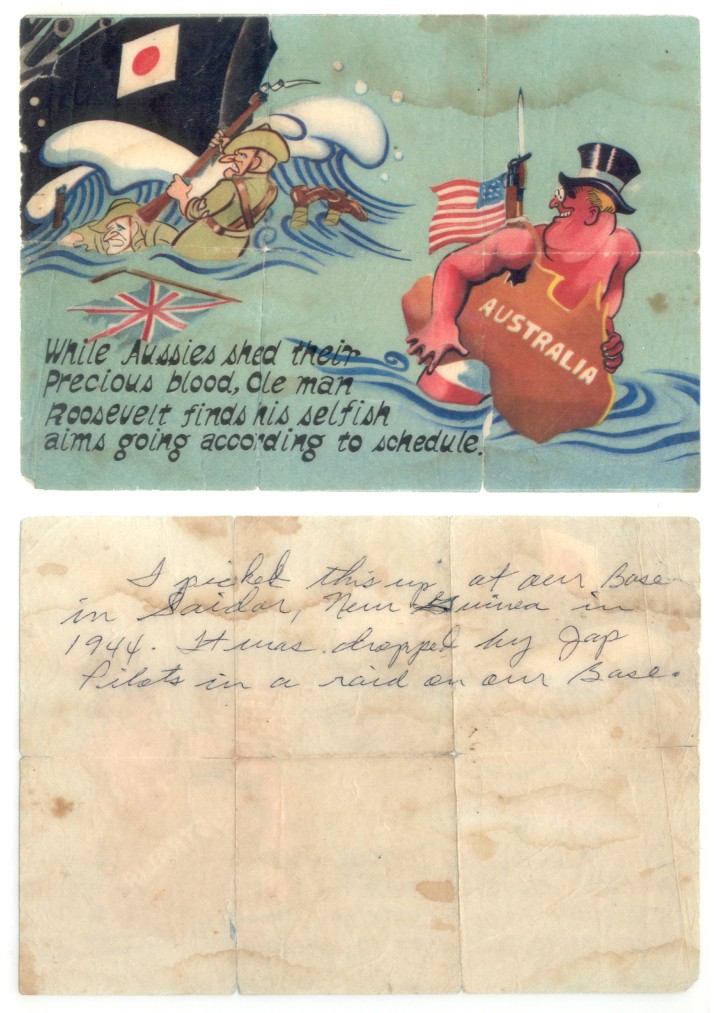 AUSTRALIA
While Aussies shed their
Precious blood, Ole man
Roosevelt finds his selfish
aims going according to schedule.
I picked this up at our Base
in Saidor, New Guinea in
1944. It was dropped by Jap
Pilots in a raid on our Base.